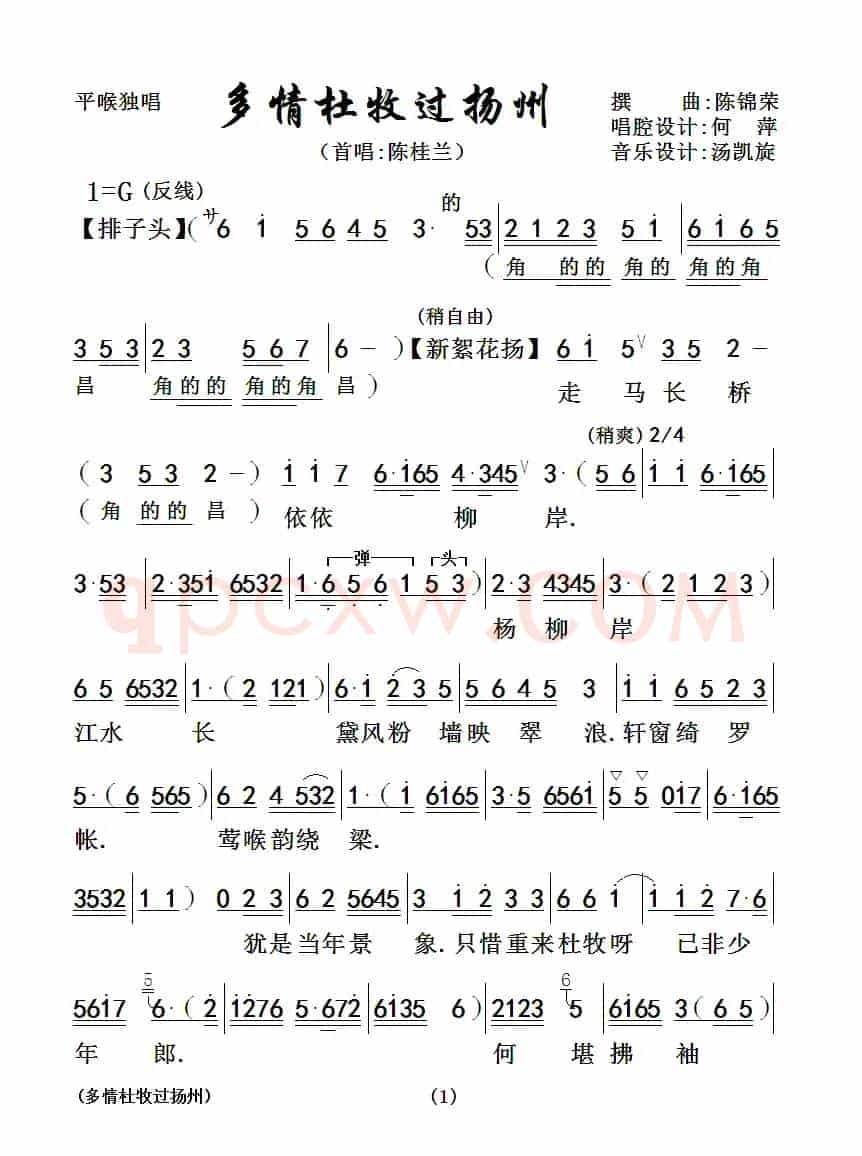 平喉独唱 多情杜牧过扬州 撰 曲:陈锦荣
唱腔设计:何 萍
(首唱:陈桂兰) 音乐设计:汤凯旋
1=G (反线) 的
【排子头】(サ6 i 5 6 4 5 3· 53|2 1 2 3 5 i|6 i 6 5
(角 的的 角的 角的角
(稍自由)
3 5 3|2 3 5 6 7|6 - )【新絮花扬】 6 i 5 V 3 5 2 -
昌 角的的 角的角 昌) 走 马 长 桥
(稍爽) 2/4
(3 5 3 2 -) i i 7 6·i65 4·345 V 3·(5 6|i i 6·i65|
(角 的的 昌) 依依 柳 岸.
弹 头
3·53|2·35i 6532|1·6 5 6 1 5 3)|2·3 4345|3·(2 1 2 3|
杨 柳 岸
6 5 6532|1·(2 121)|6·i 2 3 5|5 6 4 5 3|i i 6 5 2 3|
江水 长 黛风粉 墙映 翠 浪.轩窗绮 罗
5·(6 565)|6 2 4 532|1·(i 6i65|3·5 656i|5 5 0i7|6·i65
帐. 莺喉韵绕 梁.
3532|1 1) 0 2 3|6 2 5645|3 i 2 3 3|6 6 i|i i 2 7·6|
犹是当年景 象.只惜重来杜牧呀 已非少
5
6
56i7 6·(2|i276 5·672|6i35 6)|2123 5|6i65 3(6 5)|
年 郎. 何 堪 拂 袖
(多情杜牧过扬州) (1)
qpcxw.com